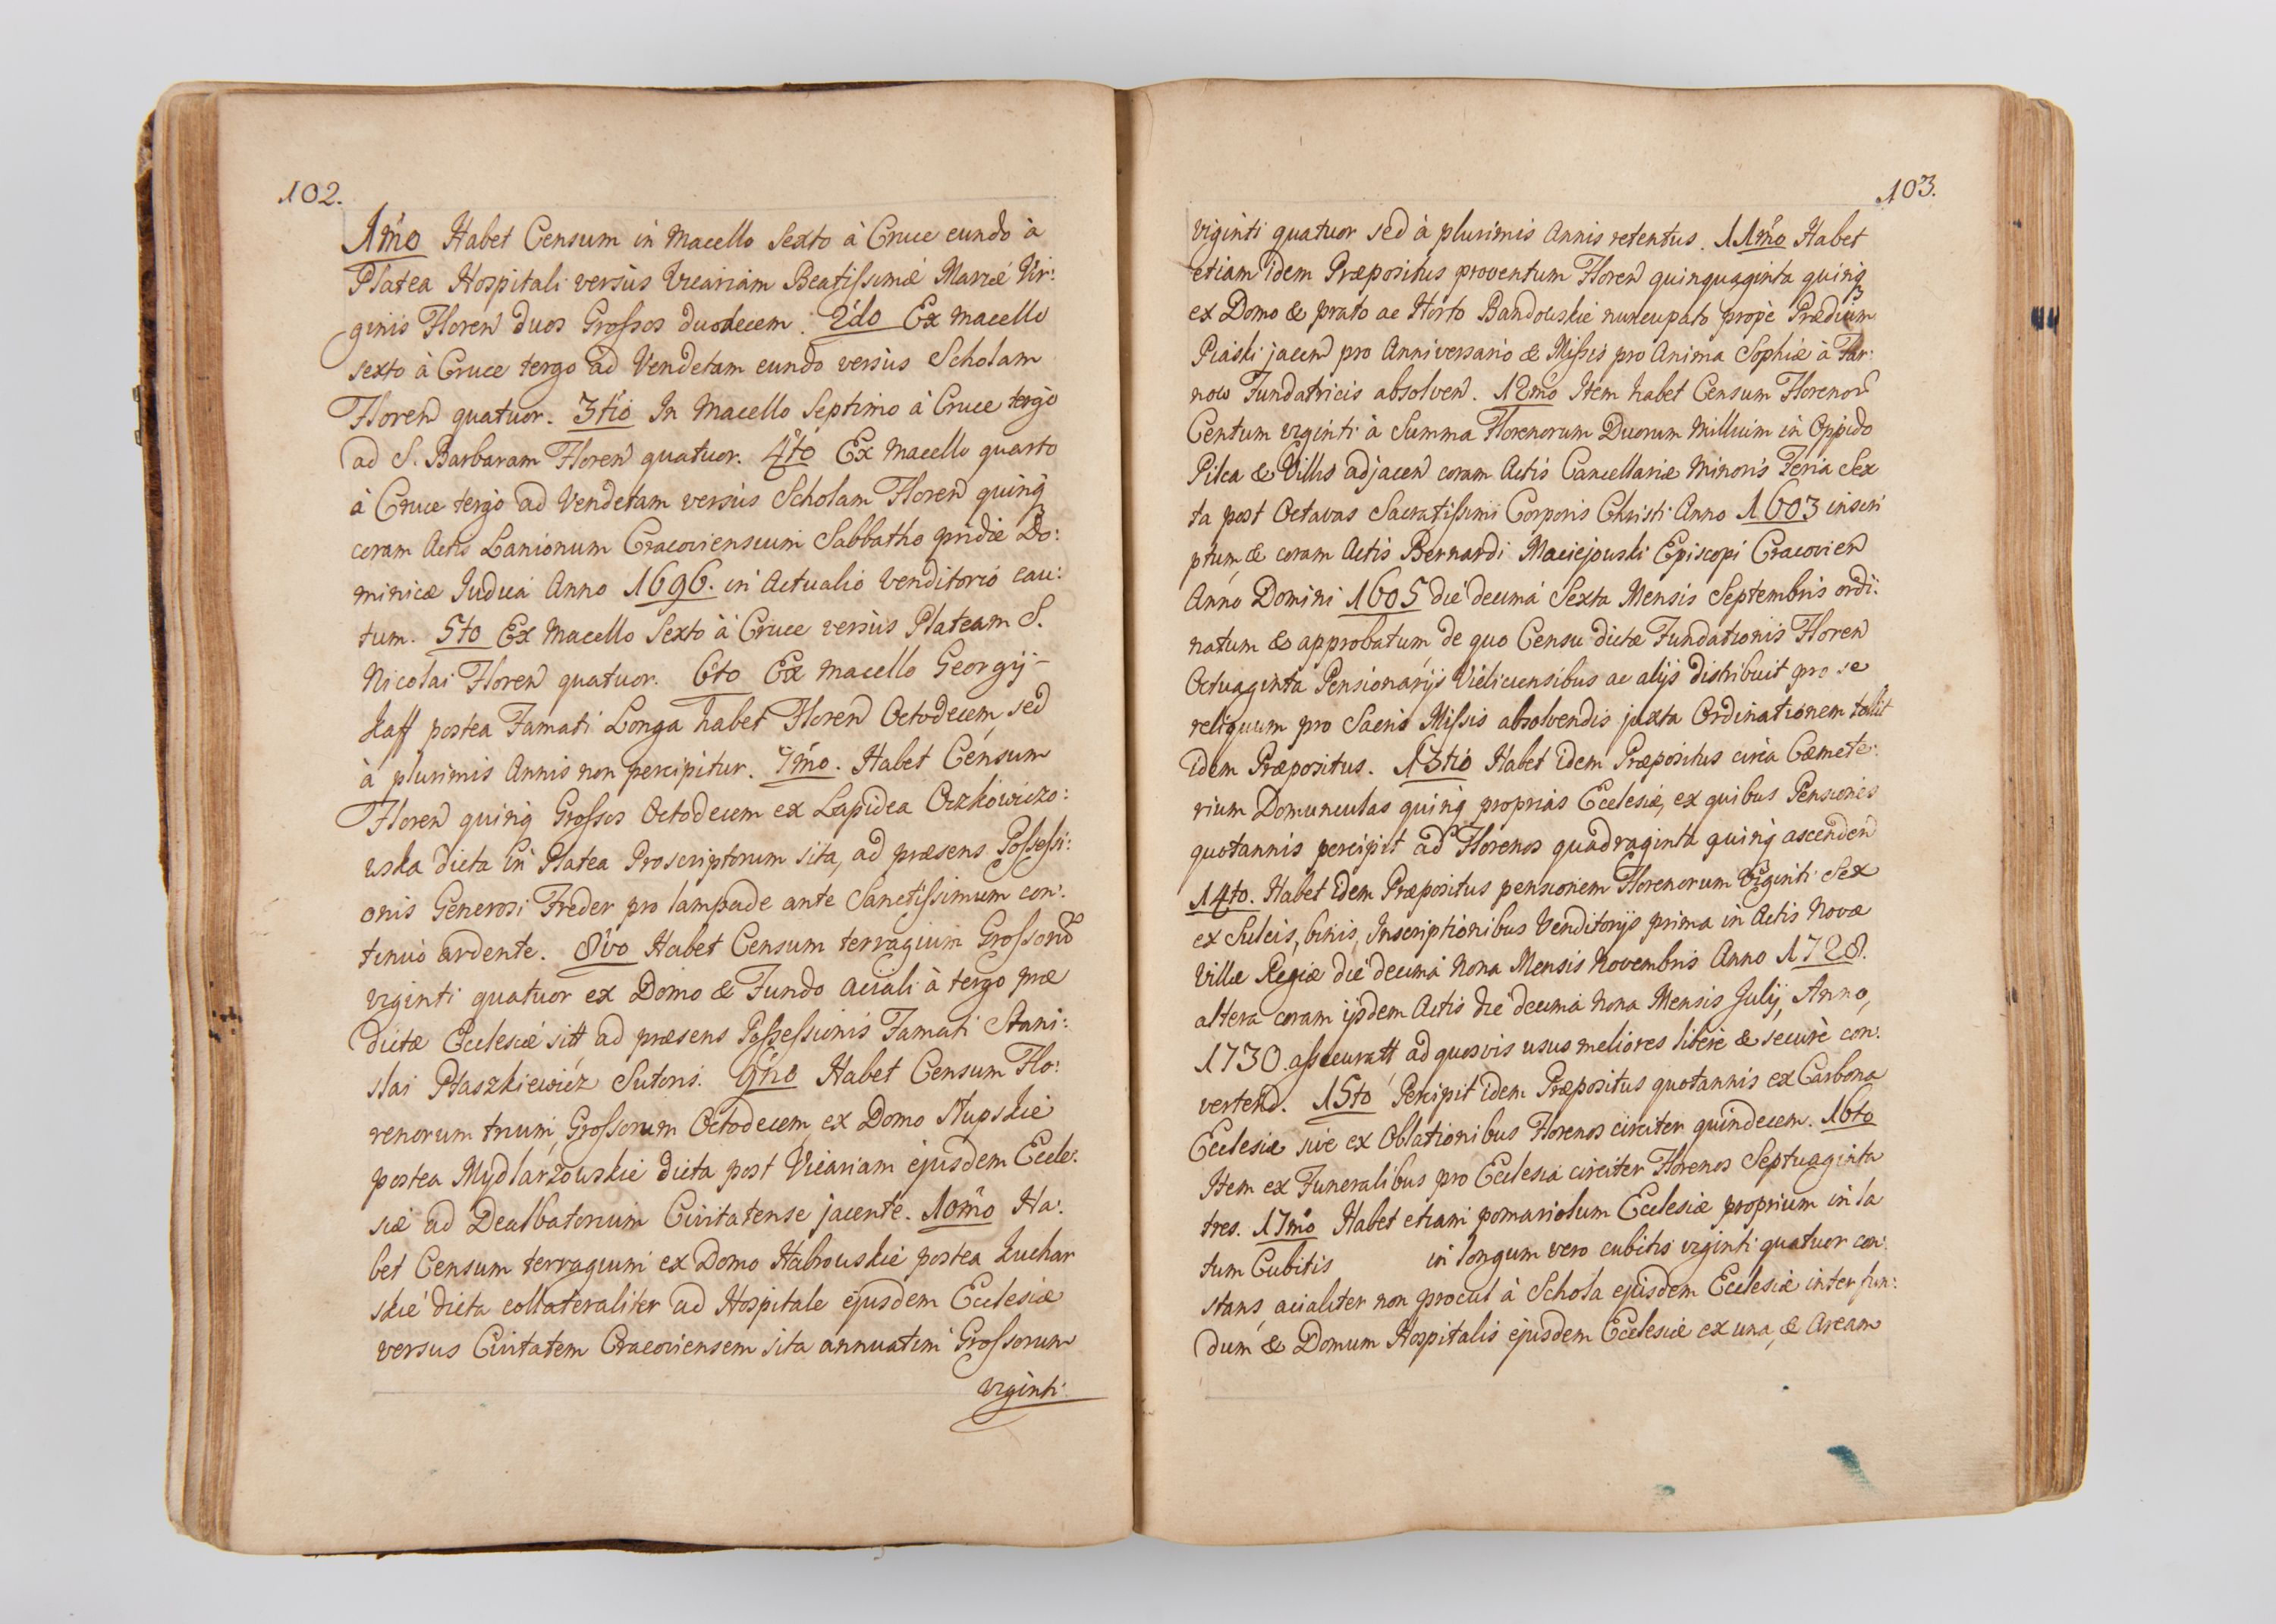 102.
1mo Habet Censum in Macello Sexto à Cruce eundo à
Platea Hospitali versùs Vicariam Beatissimæ Mariæ Vir:
ginis Floren duos Grossos duodecem. 2do Ex Macello
sexto à Cruce tergo ad Vendetam eundo versùs Scholam
Floren quatuor. 3tio In Macello Septimo à Cruce tergo
ad S. Barbaram Floren quatuor. 4to Ex Macello quarto
à Cruce tergo ad Vendetam versùs Scholam Floren quinq
coram Actis Lanionum Cracoviensium Sabbatho pridie Do:
minicæ Judica Anno 1696. in Actualio Venditorio cau:
tum. 5to Ex Macello Sexto à Cruce versùs Plateam S.
Nicolai Floren quatuor. 6to Ex Macello Georgij
Kaff postea Famati Longa habet Floren Octodecem, sed
à plurimis Annis non percipitur. 7mo. Habet Censum
Floren quinq Grossos Octodecem ex Lapidea Oczkowiczo:
wska dicta in Platea Proscriptorum sita, ad præsens Possessi:
onis Generosi Freder pro lampade ante Sanctissimum con:
tinuò ardente. 8vo Habet Censum terragium Grossorū
viginti quatuor ex Domo & Fundo aciali à tergo præ
dictæ Ecclesiæ sitt ad præsens Possessionis Famati Stani:
slai Ptaszkiewicz Sutoris. 9no Habet Censum Flo:
renorum trium, Grossorum Octodecem, ex Domo Słupskie
postea Mydlarzowskie dicta post Vicariam ejusdem Eccle:
siæ ad Dealbatorium Civitatense jacente. 10mo Ha:
bet Censum terragium ex Domo Halrowskie postea Kuchar
skie dicta collateraliter ad Hospitale ejusdem Ecclesiæ
versus Civitatem Cracoviensem sita annuatim Grossorum
viginti
103.
viginti quatuor sed à plurimis Annis retentus. 11mo Habet
etiam idem Præpositus proventum Floren quinquaginta quinq
ex Domo & prato ac Horto Bandowskie nuncupato propè Prædium
Piaski jacen pro Anniversario & Missis pro Anima Sophiæ à Tar:
now Fundatricis absolven. 12mo Item habet Censum Florenor
Centum viginti à Summa Florenorum Duorum Millium in Oppido
Pilca & Villis adjacen coram Actis Cancellariæ Minoris Feria Sex
ta post Octavas Sacratissimi Corporis Christi Anno 1603 inscri
ptum, & coram Actis Bernardi Maciejowski Episcopi Cracovien
Anno Domini 1605 die decimá Sexta Mensis Septembris ordi:
natum & approbatum, de quo Censu dictæ Fundationis Floren
Octuaginta Pensionarijs Vieliciensibus ac alijs distribuit pro se
reliquum pro Sacris Missis absolvendis juxta Ordinationem tollit
idem Præpositus. 13tio Habet idem Præpositus circa Cæmete:
rium Domunculas quinq proprias Ecclesiæ, ex quibus Pensiones
quotannis percipit ad Florenos quadraginta quinq ascenden
14to. Habet idem Præpositus pensionem Florenorum Viginti Sex
ex Sulcis, binis, Inscriptionibus Venditorijs prima in Actis Novæ
Villæ Regiæ die decimá Nona Mensis Novembris Anno 1728.
altera coram ijsdem Actis die decima Nona Mensis Julij, Anno,
1730. assecuratt, ad quosvis usus meliores liberè & securè con:
vertend. 15to Percipit idem Præpositus quotannis ex Carbona
Ecclesiæ sive ex Oblationibus Florenos circiter quindecem. 16to
Item ex Funeralibus pro Ecclesia circiter Florenos Septuaginta
tres. 17mo Habet etiam pomariolum Ecclesiæ proprium in la
tum Cubitis in longum vero cubitis viginti quatuor con:
stans, acialiter non procul à Schola ejusdem Ecclesiæ inter fun:
dum & Domum Hospitalis ejusdem Ecclesiæ ex una, & Aream